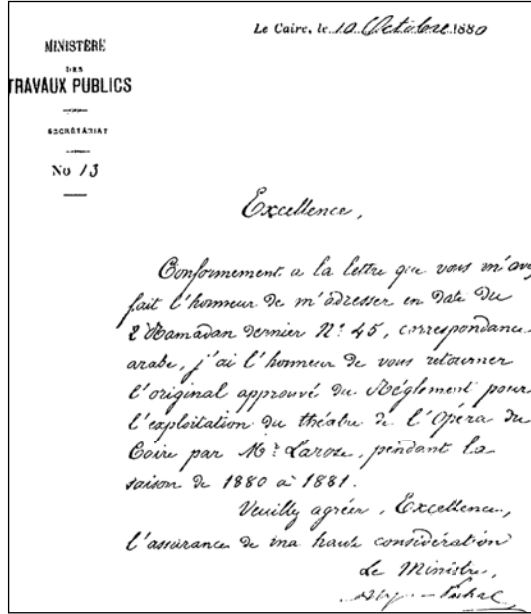 Le Caire, le 10 Octobre 1880
MINISTÈRE
DES
TRAVAUX PUBLICS
SECRÉTARIAT
No 13
Excellence,
Conformement a la lettre que vous m'avez
fait l'honneur de m'adresser en date du
2 Ramadan dernier N° 45, correspondance
arabe, j'ai l'honneur de vous retourner
l'original approuvé du Réglement pour
l'exploitation du théatre de l'Opéra du
Caire par Mr Larose, pendant la
saison de 1880 à 1881.
Veuillez agréer, Excellence,
l'assurance de ma haute considération
Le Ministre,